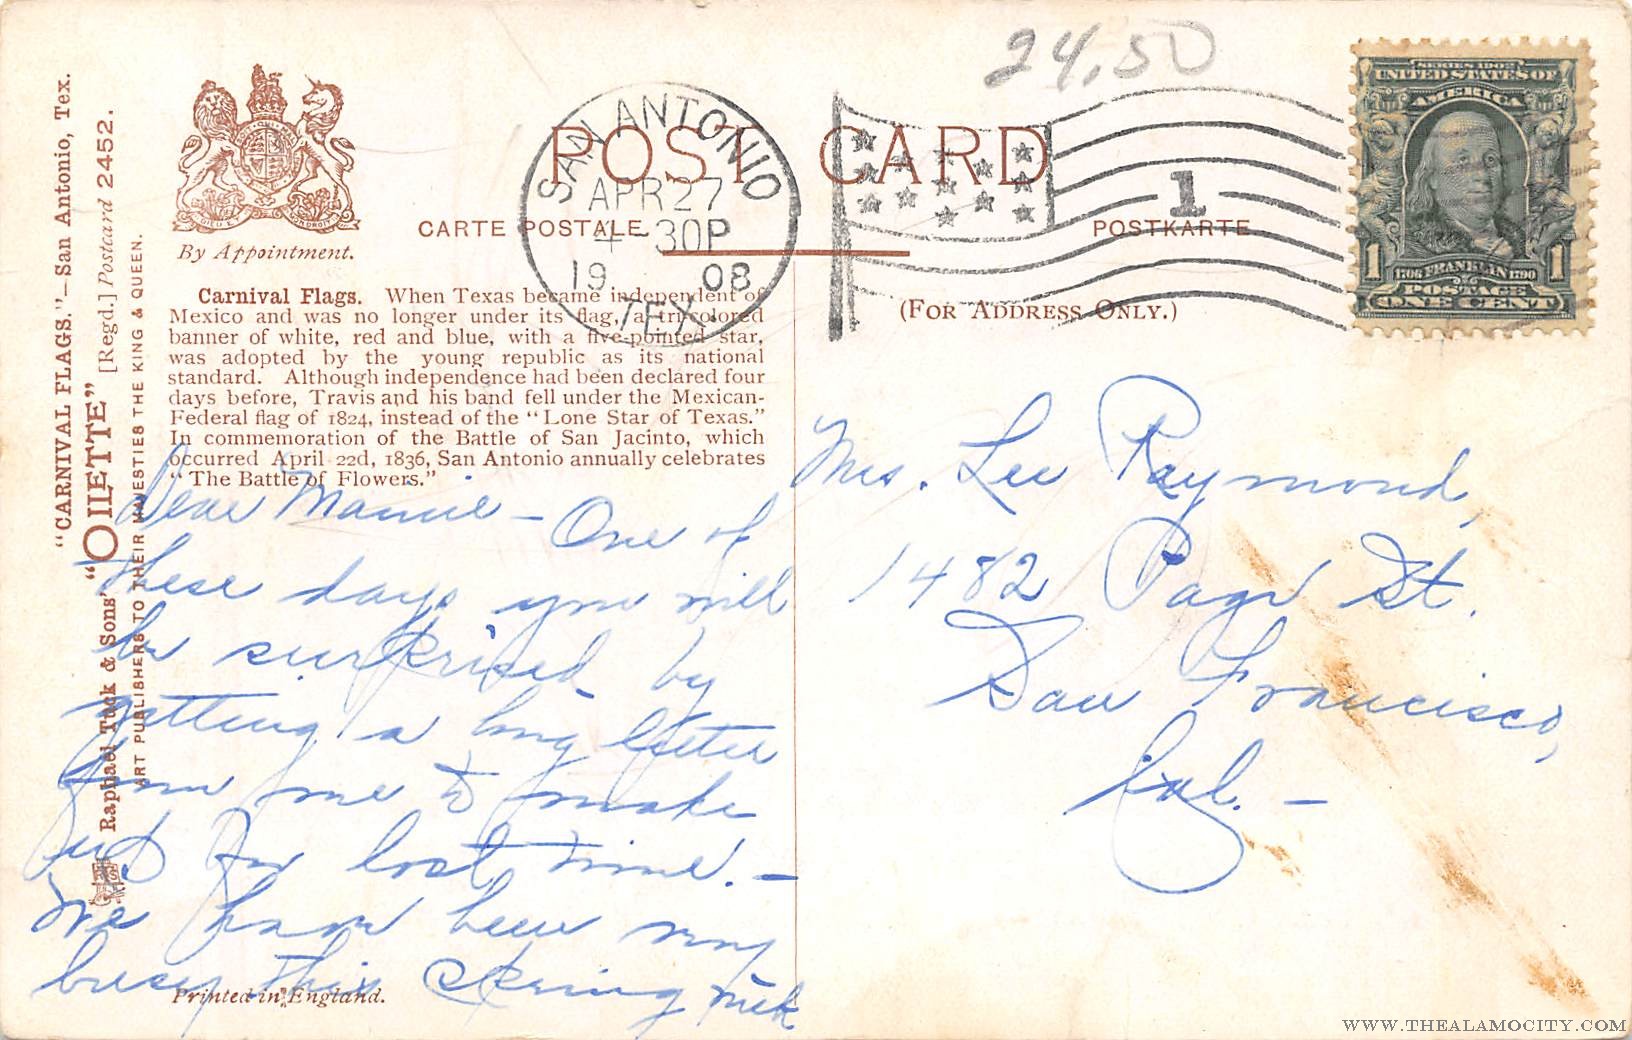 24.50
SERIES 1902
UNITED STATES OF
AMERICA
1706 FRANKLIN 1790
POSTAGE
1 ONE CENT 1
SAN ANTONIO
APR 27
4-30P
1908
TEX.
1
POST CARD
CARTE POSTALE
POSTKARTE
(FOR ADDRESS ONLY.)
By Appointment.
"CARNIVAL FLAGS."—San Antonio, Tex.
Raphael Tuck & Sons' "OILETTE" [Regd.] Postcard 2452.
ART PUBLISHERS TO THEIR MAJESTIES THE KING & QUEEN.
Carnival Flags. When Texas became independent of
Mexico and was no longer under its flag, a tri-colored
banner of white, red and blue, with a five-pointed star,
was adopted by the young republic as its national
standard. Although independence had been declared four
days before, Travis and his band fell under the Mexican-
Federal flag of 1824, instead of the "Lone Star of Texas."
In commemoration of the Battle of San Jacinto, which
occurred April 22d, 1836, San Antonio annually celebrates
"The Battle of Flowers."
Dear Mamie - One of
these days you will
be surprised by
getting a long letter
from me to make
up for lost time. -
We have been very
busy this Spring with
Printed in England.
Mrs. Lee Raymond,
1482 Page St.
San Francisco,
Cal. -
WWW.THEALAMOCITY.COM